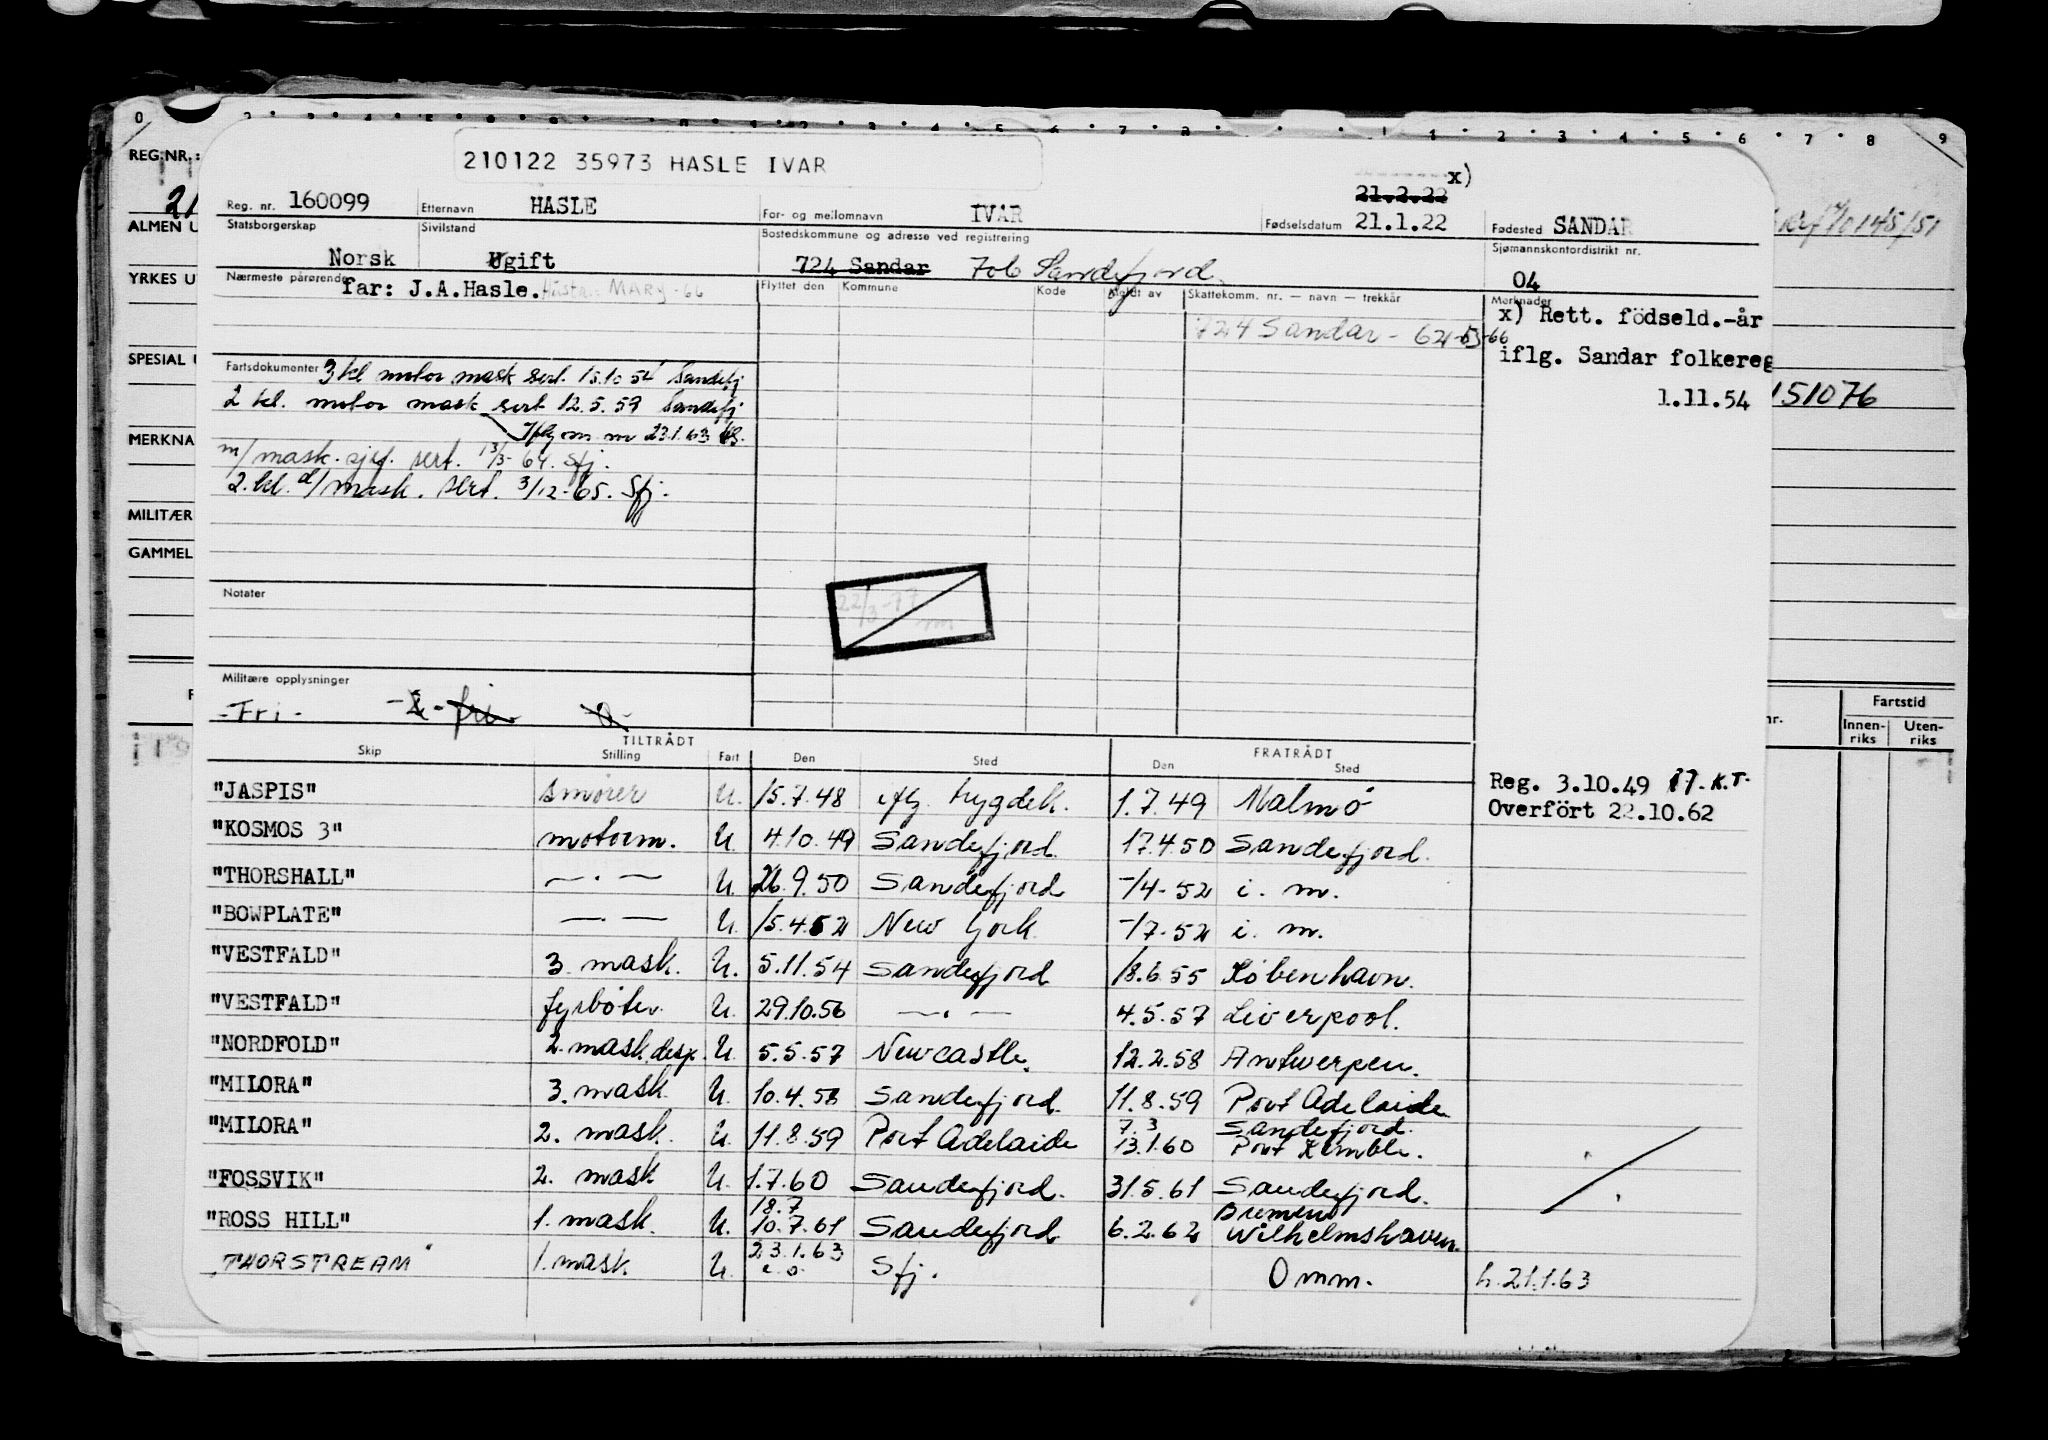 210122 35973 HASLE IVAR
REG.NR.:
ALMEN U
YRKES U
SPESIAL U
MERKNA
MILITÆR
GAMMEL
Reg. nr. 160099 Etternavn HASLE For- og mellomnavn IVAR Fødselsdatum 21.2.22 x) 21.1.22 Fødested SANDAR
Statsborgerskap Norsk Sivilstand Ugift Bostedskommune og adresse ved registrering 724 Sandar 706 Sandefjord Sjømannskontordistrikt nr. 04
Nærmeste pårørende far: J.A.Hasle. Hustru MARY -66
Flyttet den Kommune Kode Meldt av Skattekomm. nr. — navn — trekkår
724 Sandar - 62-63-66
Merknader
x) Rett. födseld.-år
iflg. Sandar folkereg
1.11.54
151076
Fartsdokumenter 3 kl motor mask sert. 15.10 54 Sandefj
2 kl. motor mask sert 12.5.59 Sandefj
23.1.63
m/mask. sjef. sert. 13/3-64. Sfj.
2.kl. d/mask. sert. 3/12-65. Sfj.
Notater
22/3-77
Militære opplysninger
-Fri- fri
TILTRÅDT FRATRÅDT
Skip Stilling Fart Den Sted Den Sted
Fartstid
Innen-riks Uten-riks
Reg. 3.10.49 17. K.T.
Overfört 22.10.62
"JASPIS" smører U. 15.7.48 iflg. trygdek. 1.7.49 Malmö
"KOSMOS 3" motorm. U. 4.10.49 Sandefjord 17.4.50 Sandefjord.
"THORSHALL" —.— U. 26.9.50 Sandefjord -/4-52 i. m.
"BOWPLATE" —.— U. 15.4.52 New York -/7-52 i. m.
"VESTFALD" 3. mask. U. 5.11.54 Sandefjord 18.6.55 København.
"VESTFALD" fyrbøter. U. 29.10.56 —.— 4.5.57 Liverpool.
"NORDFOLD" 2. mask. desp. U. 5.5.57 Newcastle. 12.2.58 Antwerpen.
"MILORA" 3. mask. U. 10.4.58 Sandefjord. 11.8.59 Port Adelaide
"MILORA" 2. mask. U. 11.8.59 Port Adelaide 7.3 Sandefjord. 13.1.60 Port Kembla.
"FOSSVIK" 2. mask U. 1.7.60 Sandefjord. 31.5.61 Sandefjord.
"ROSS HILL" 1. mask. U. 18.7 10.7.61 Sandefjord 6.2.62 Bremen Wilhelmshaven.
"THORSTREAM" 1. mask U. 23.1.63 Sfj. Omm. h.21.1.63